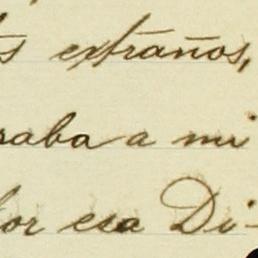 s extraños,
raba a mi
por esa Di-